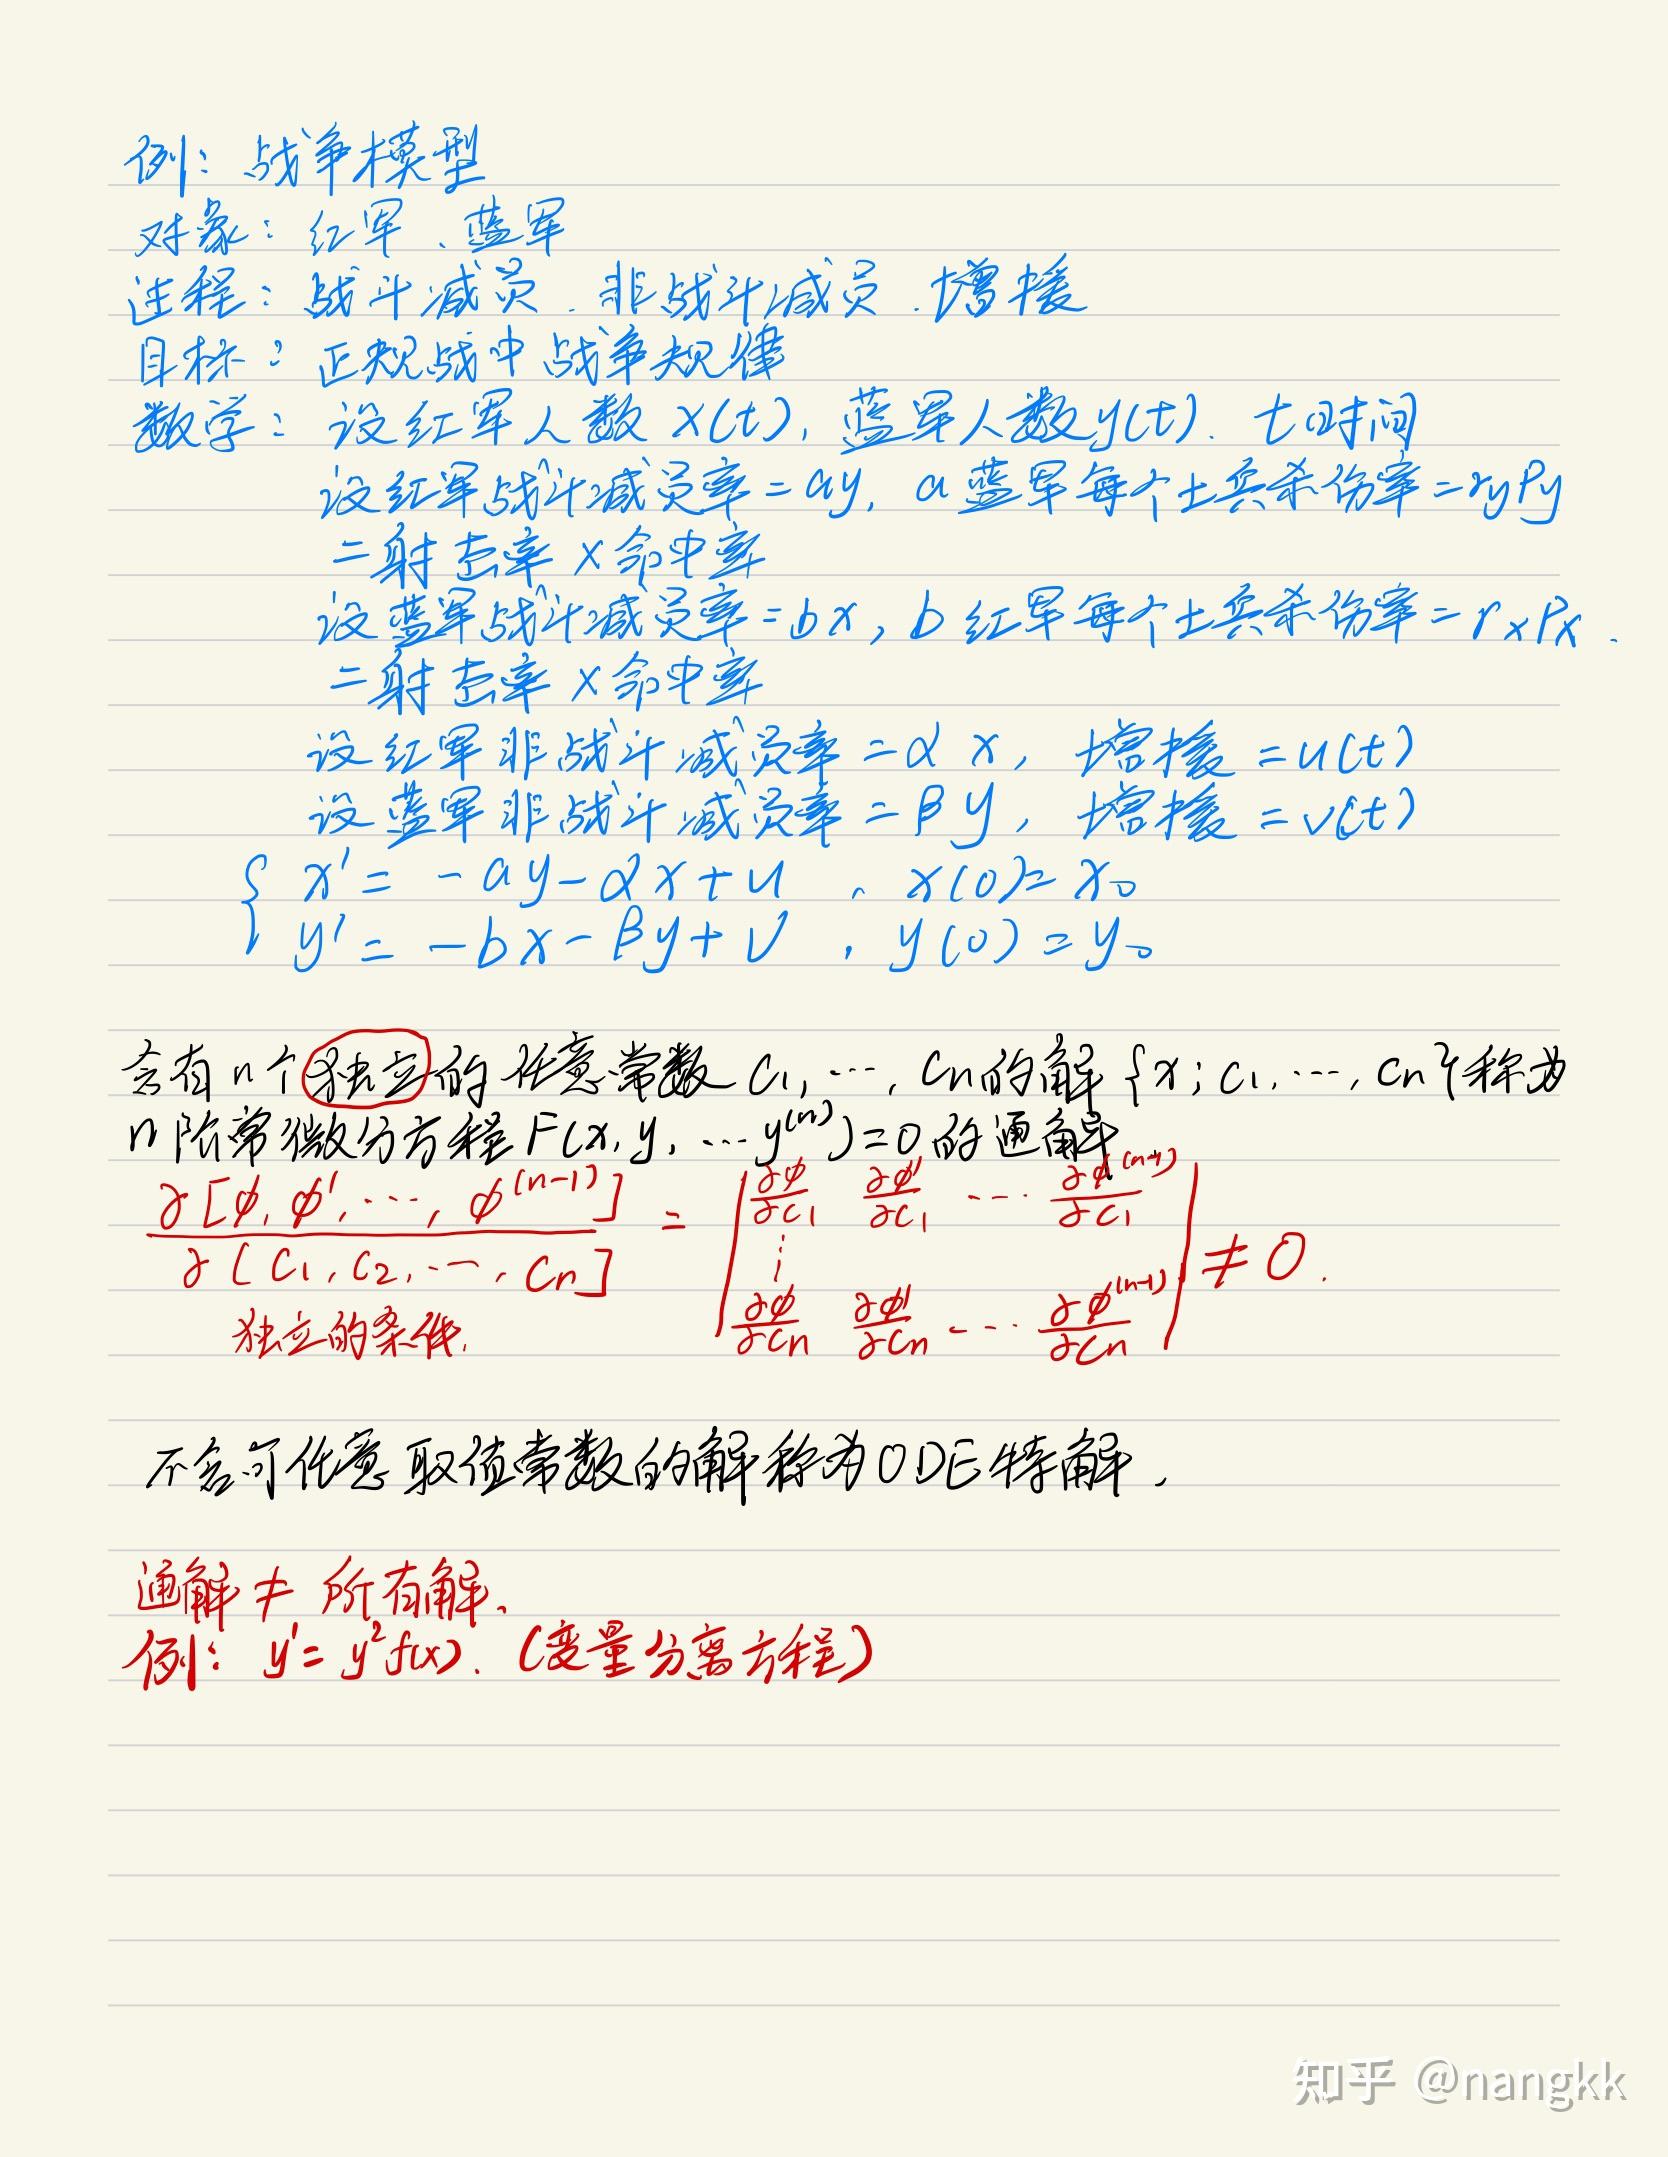 例：战争模型
对象：红军、蓝军
过程：战斗减员、非战斗减员、增援
目标：正规战中战争规律
数学：设红军人数x(t)，蓝军人数y(t)．t时间
设红军战斗减员率=ay，a蓝军每个士兵杀伤率=ryPy
=射击率×命中率
设蓝军战斗减员率=bx，b红军每个士兵杀伤率=rxPx．
=射击率×命中率
设红军非战斗减员率=αx，增援=u(t)
设蓝军非战斗减员率=βy，增援=v(t)
{ x'=-ay-αx+u，x(0)=x₀
y'=-bx-βy+v，y(0)=y₀
含有n个独立的任意常数C₁,…,Cn的解{x;C₁,…,Cn}称为
n阶常微分方程F(x,y,…y⁽ⁿ⁾)=0的通解
∂[φ,φ',…,φ⁽ⁿ⁻¹⁾] / ∂[C₁,C₂,…,Cn] = | ∂φ/∂C₁ ∂φ'/∂C₁ … ∂φ⁽ⁿ⁻¹⁾/∂C₁
⋮
∂φ/∂Cn ∂φ'/∂Cn … ∂φ⁽ⁿ⁻¹⁾/∂Cn | ≠0．
独立的条件．
不含可任意取值常数的解称为ODE特解．
通解≠所有解．
例：y'=y²f(x)．(变量分离方程)
知乎 @nangkk